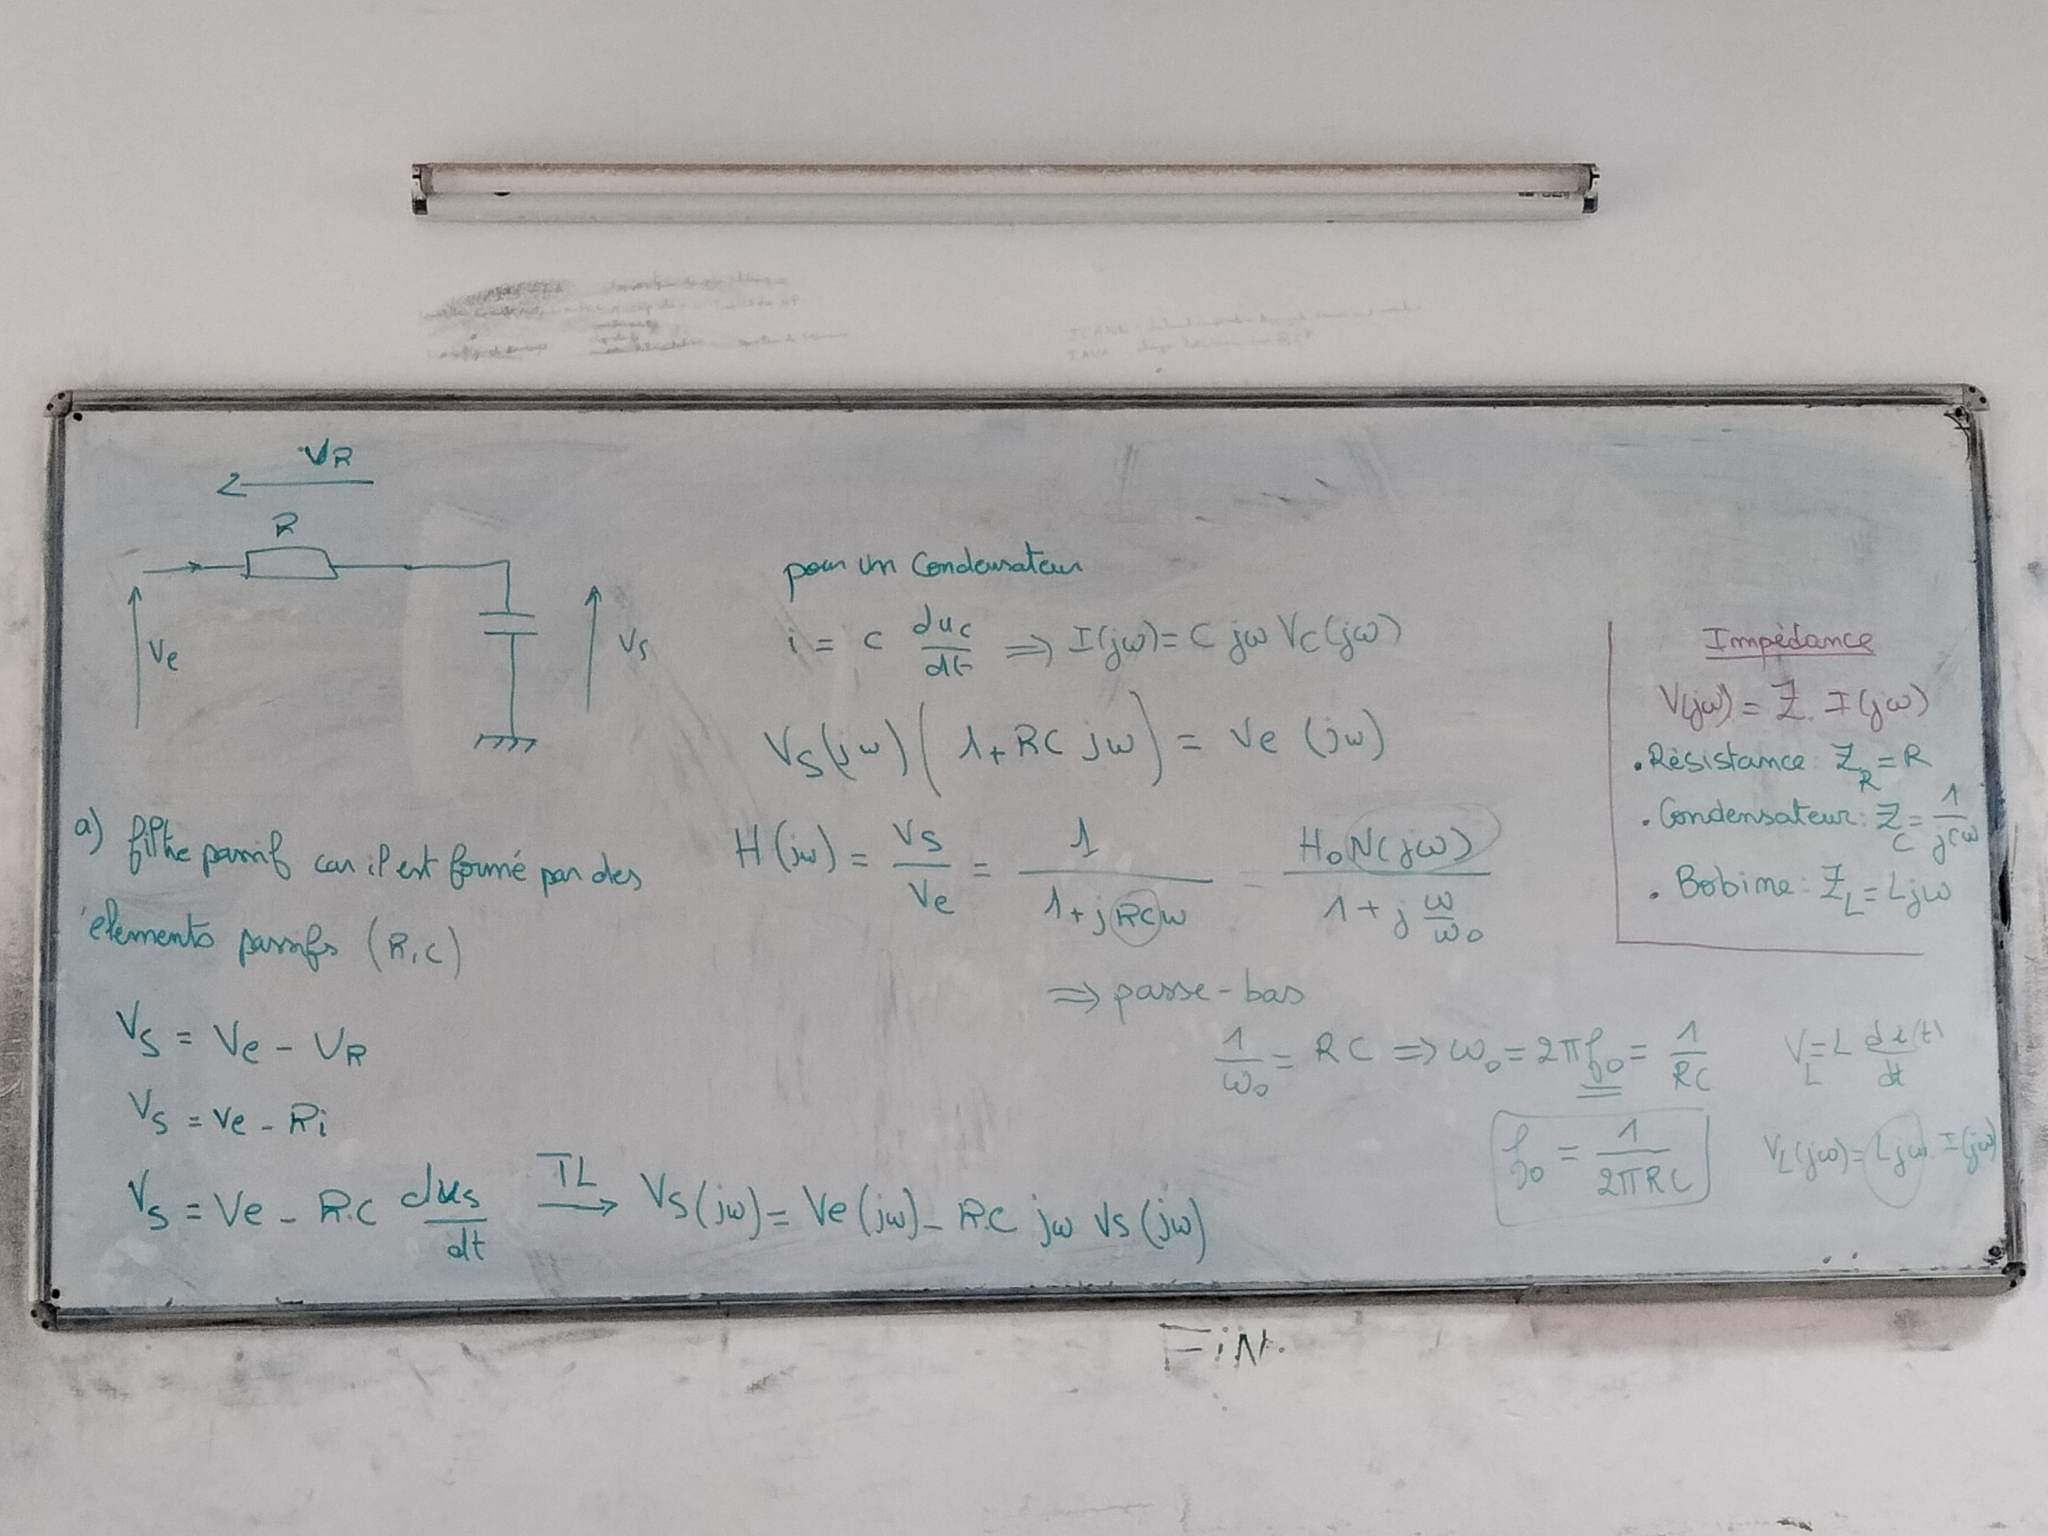 VR
R
Ve
Vs
a) filtre passif car il est formé par des
élements passifs (R,C)
Vs = Ve - UR
Vs = Ve - Ri
Vs = Ve - R.C dus/dt TL → Vs(jω) = Ve(jω) - R.C jω Vs(jω)
pour un Condensateur
i = C duc/dt ⇒ I(jω) = C jω Vc(jω)
Vs(jω)(1 + RC jω) = Ve (jω)
H(jω) = Vs/Ve = 1/(1 + jRCω) = H₀N(jω)/(1 + j ω/ω₀)
⇒ passe-bas
1/ω₀ = RC ⇒ ω₀ = 2πf₀ = 1/RC
f₀ = 1/2πRC
Impédance
V(jω) = Z. I(jω)
. Résistance : Z_R = R
. Condensateur : Z_C = 1/jCω
. Bobine : Z_L = Ljω
V_L = L di(t)/dt
V_L(jω) = Ljω. I(jω)
FiN.